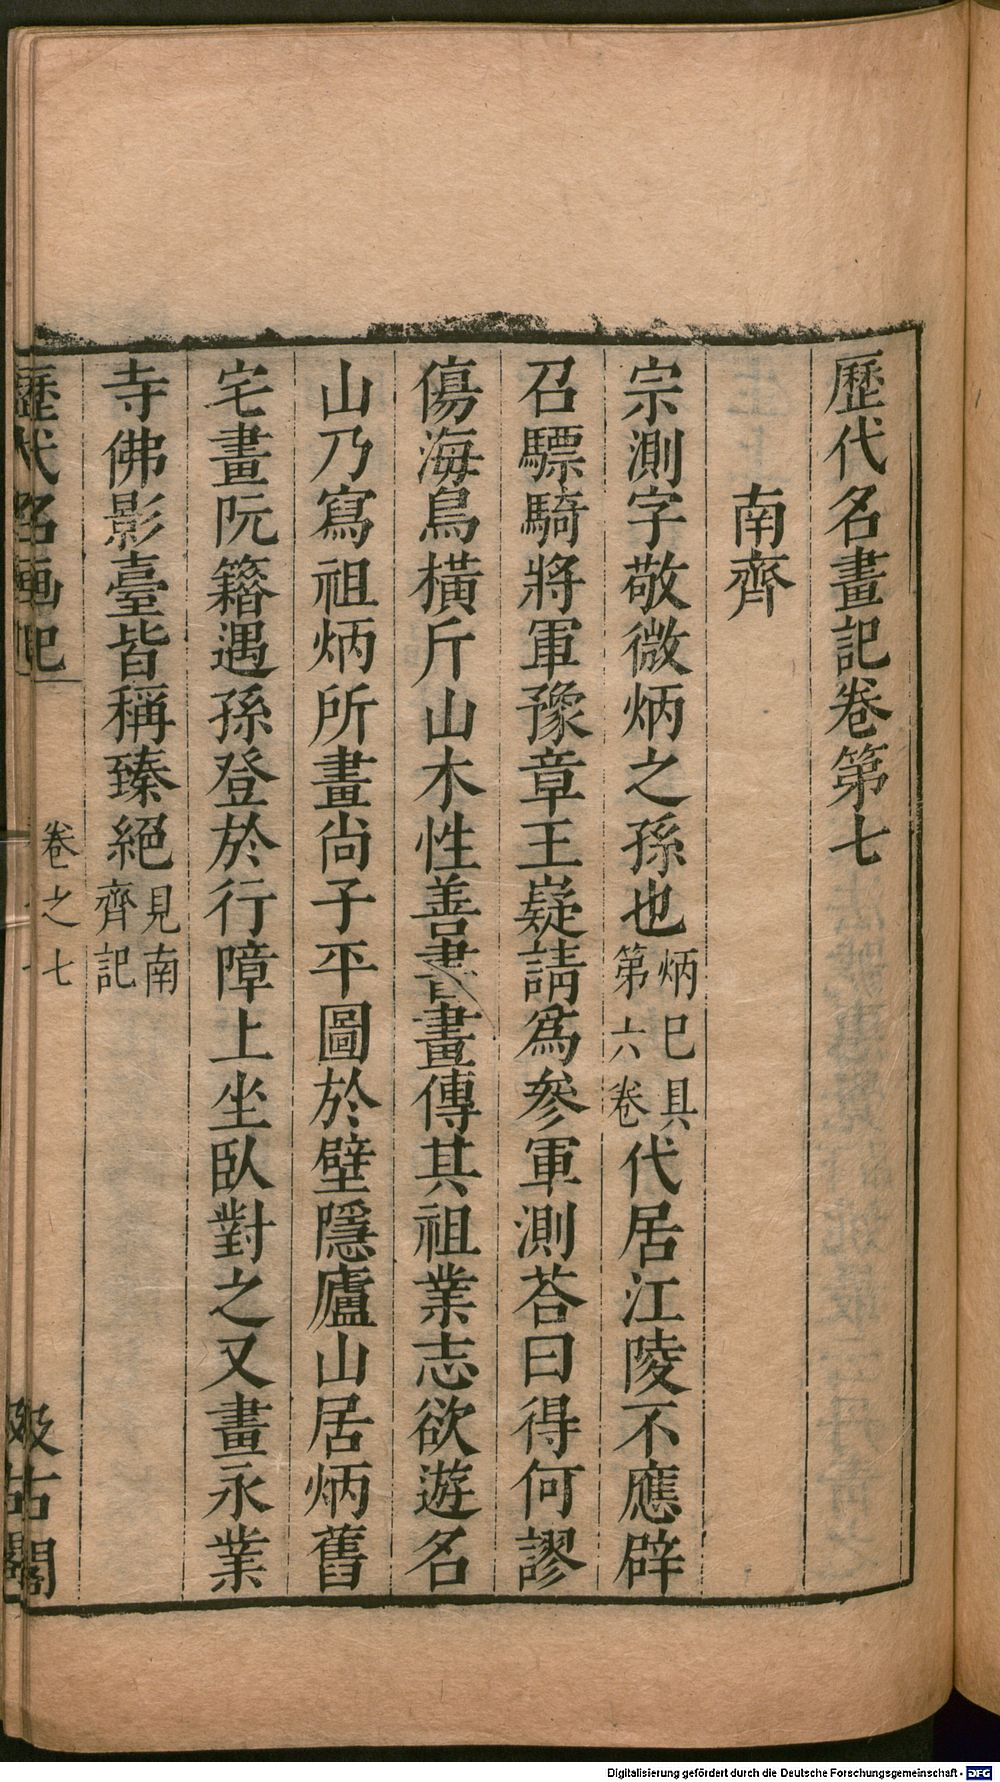 歷代名畫記卷第七
南齊
宗測字敬微炳之孫也炳巳具第六卷代居江陵不應辟
召驃騎將軍豫章王嶷請爲參軍測荅曰得何謬
傷海鳥橫斤山木性善書畫傳其祖業志欲遊名
山乃寫祖炳所畫尚子平圖於壁隱廬山居炳舊
宅畫阮籍遇孫登於行障上坐臥對之又畫永業
寺佛影臺皆稱臻絕見南齊記
歷代名画記 卷之七 汲古閣
Digitalisierung gefördert durch die Deutsche Forschungsgemeinschaft - DFG